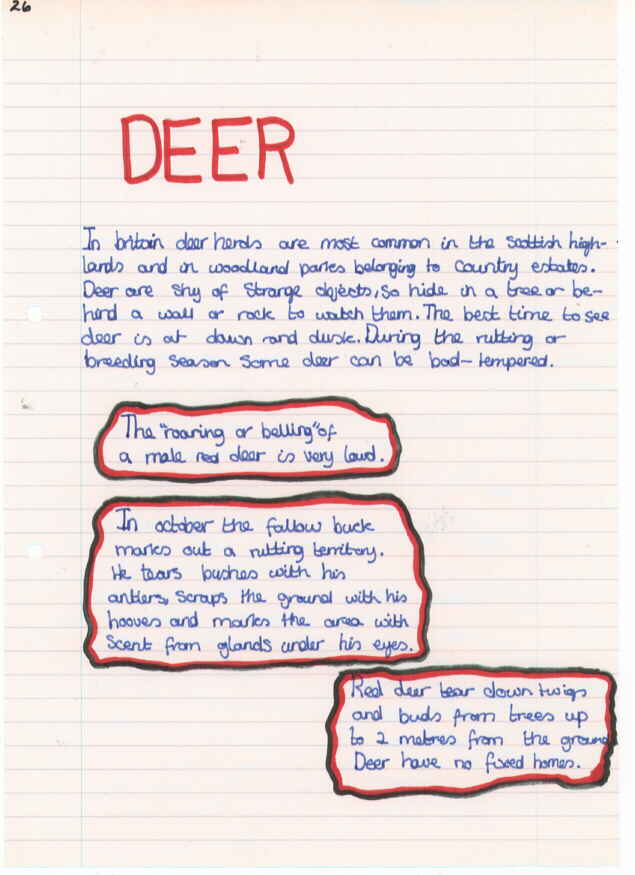 26
DEER
In britain deer herds are most common in the scottish high-
lands and in woodland parks belonging to country estates.
Deer are shy of strange objects, so hide in a tree or be-
hind a wall or rock to watch them. The best time to see
deer is at dawn and dusk. During the rutting or
breeding season some deer can be bad-tempered.
The "roaring or belling" of
a male red deer is very loud.
In october the fallow buck
marks out a rutting territory.
He tears bushes with his
antlers, scraps the ground with his
hooves and marks the area with
scent from glands under his eyes.
Red deer tear down twigs
and buds from trees up
to 2 metres from the ground
Deer have no fixed homes.